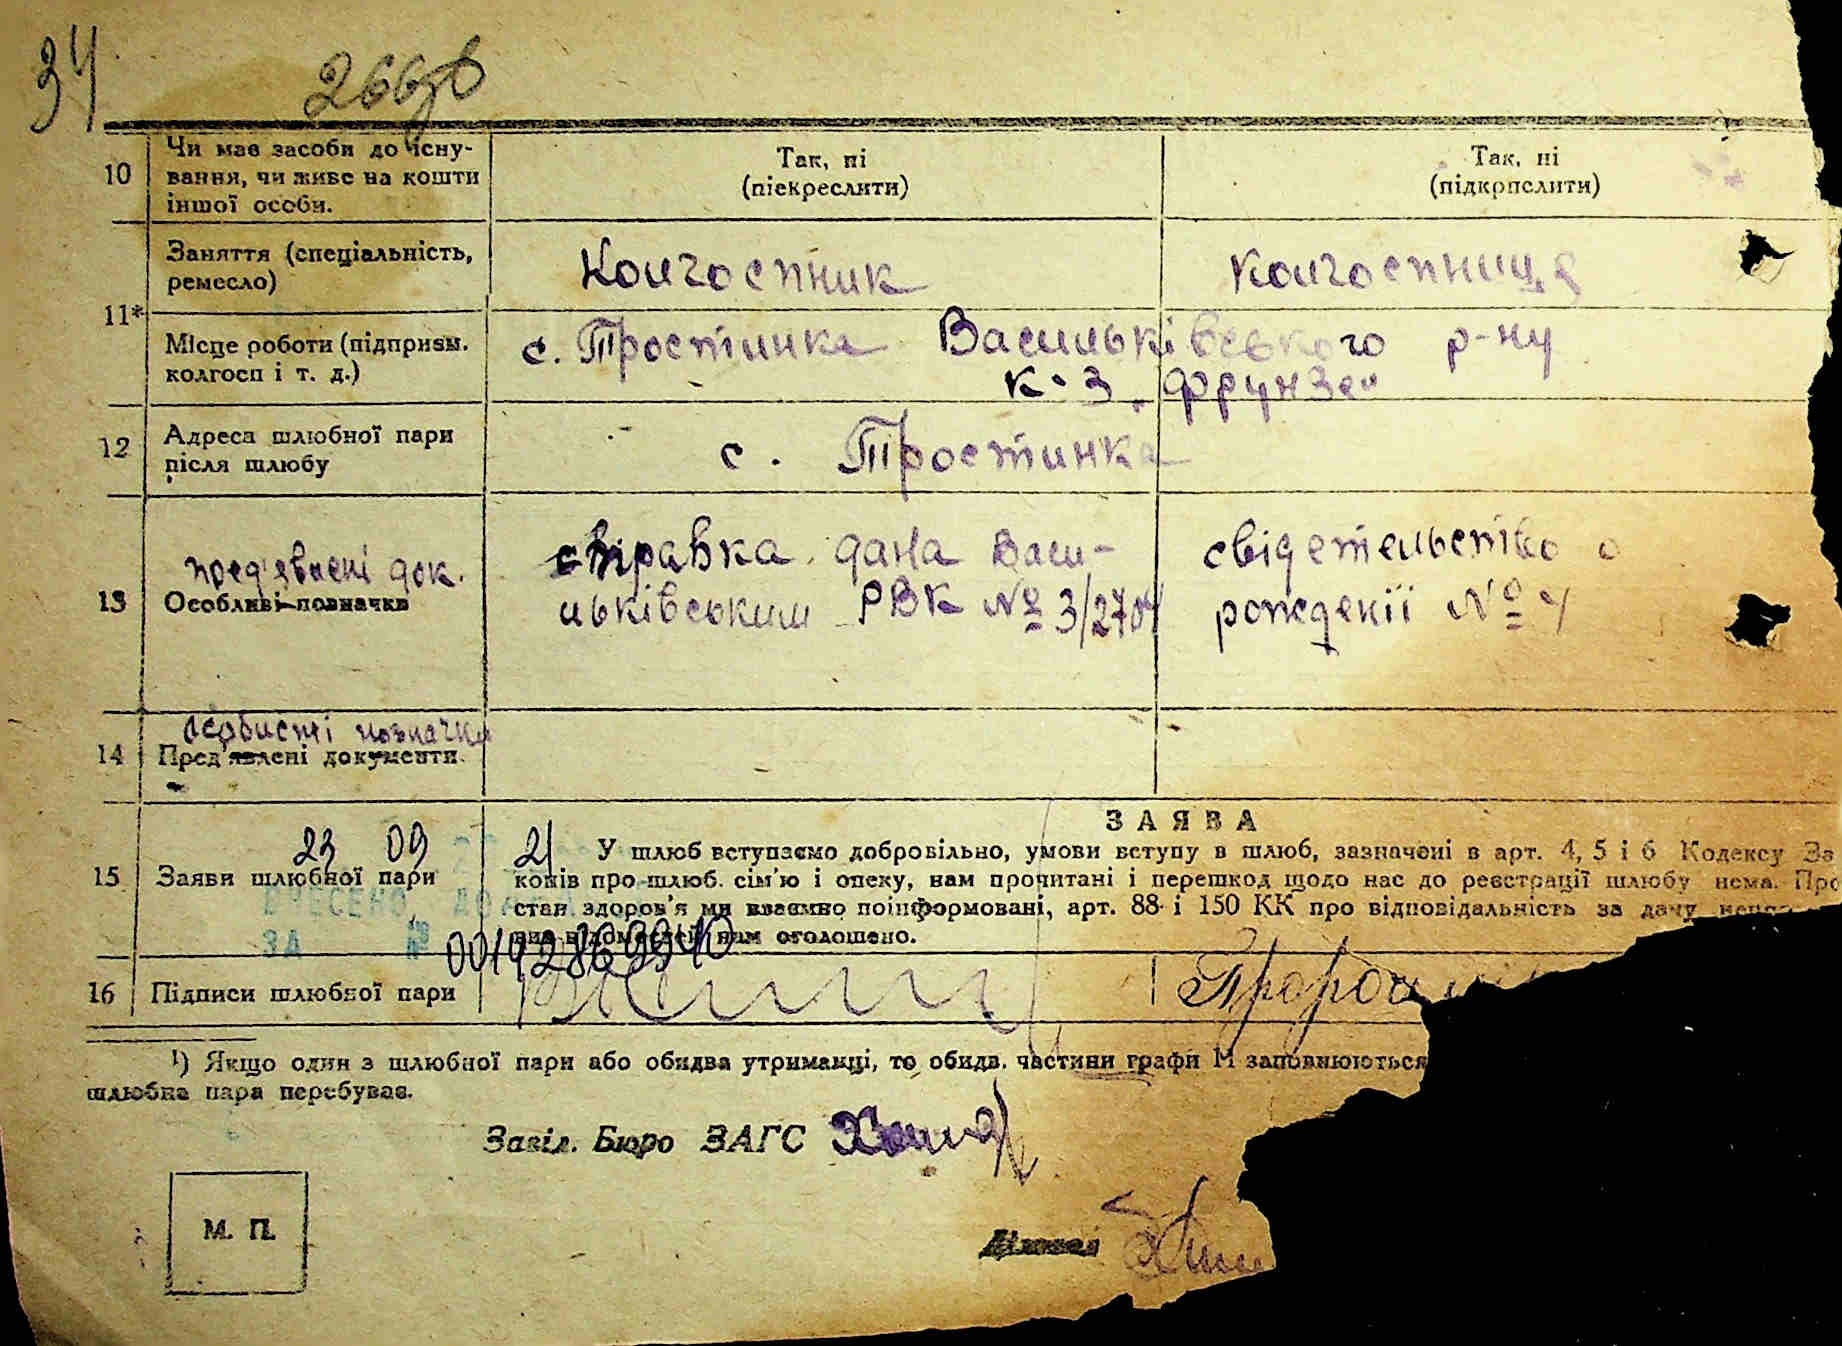 34
266зв
10 Чи має засоби до існу-
вання, чи живе на кошти
іншої особи.
Так, ні
(піекреслити)
Так, ні
(підкрпслити)
11*
Заняття (спеціальність,
ремесло)
Колгоспник
колгоспниця
Місце роботи (підприєм.
колгосп і т. д.)
с. Тростинка Васильківського р-ну
к-з „Фрунзе"
12 Адреса шлюбної пари
після шлюбу
с. Тростинка
13 пред'явлені док.
Особливі позначки
справка дана Васи-
льківським РВК № 3/2704
свідетельство о
рождекії № 4
14 особисті позначки
Пред'явлені документи.
15 Заяви шлюбної пари
23 09 21
ВНЕСЕНО ДО
ЗА №
00192869940
ЗАЯВА
У шлюб вступаємо добровільно, умови вступу в шлюб, зазначені в арт. 4, 5 і 6 Кодексу За
конів про шлюб. сім'ю і опеку, нам прочитані і перешкод щодо нас до реєстрації шлюбу нема. Про
стан здоров'я ми взаємно поінформовані, арт. 88 і 150 КК про відповідальність за дачу
нам оголошено.
16 Підписи шлюбної пари
¹) Якщо один з шлюбної пари або обидва утриманці, то обидв. частини графи 11 заповнюються
шлюбна пара перебуває.
Завід. Бюро ЗАГС
М. П.
Діловод